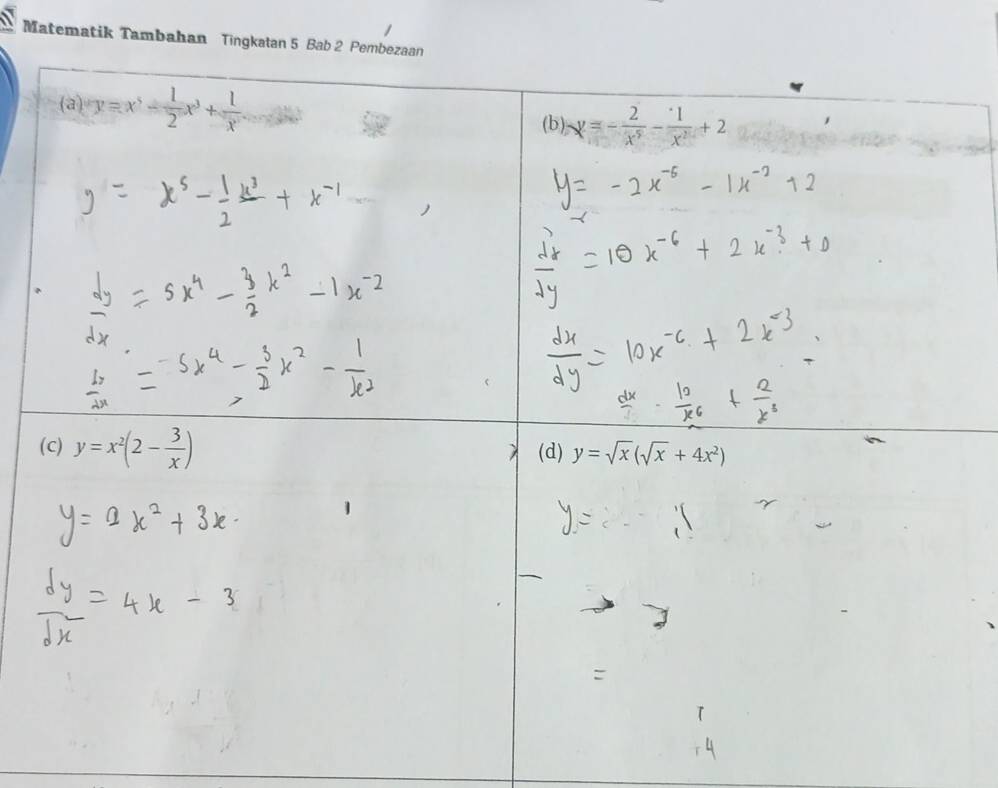 Matematik Tambahan Tingkatan 5 Bab 2 Pembezaan
(a) y = x⁵ − 1/2 x³ + 1/x
y = x⁵ − 1/2 x³ + x⁻¹
dy/dx = 5x⁴ − 3/2 x² − 1x⁻²
= 5x⁴ − 3/2 x² − 1/x²
(b) y = −2/x⁵ − 1/x² + 2
y = −2x⁻⁶ − 1x⁻² + 2
dx/dy = 10x⁻⁶ + 2x⁻³ + 0
dx/dy = 10x⁻⁶ + 2x⁻³
dx 10/x⁶ + 2/x³
(c) y = x²(2 − 3/x)
y = 2x² + 3x
dy/dx = 4x − 3
(d) y = √x (√x + 4x²)
y =
=
4